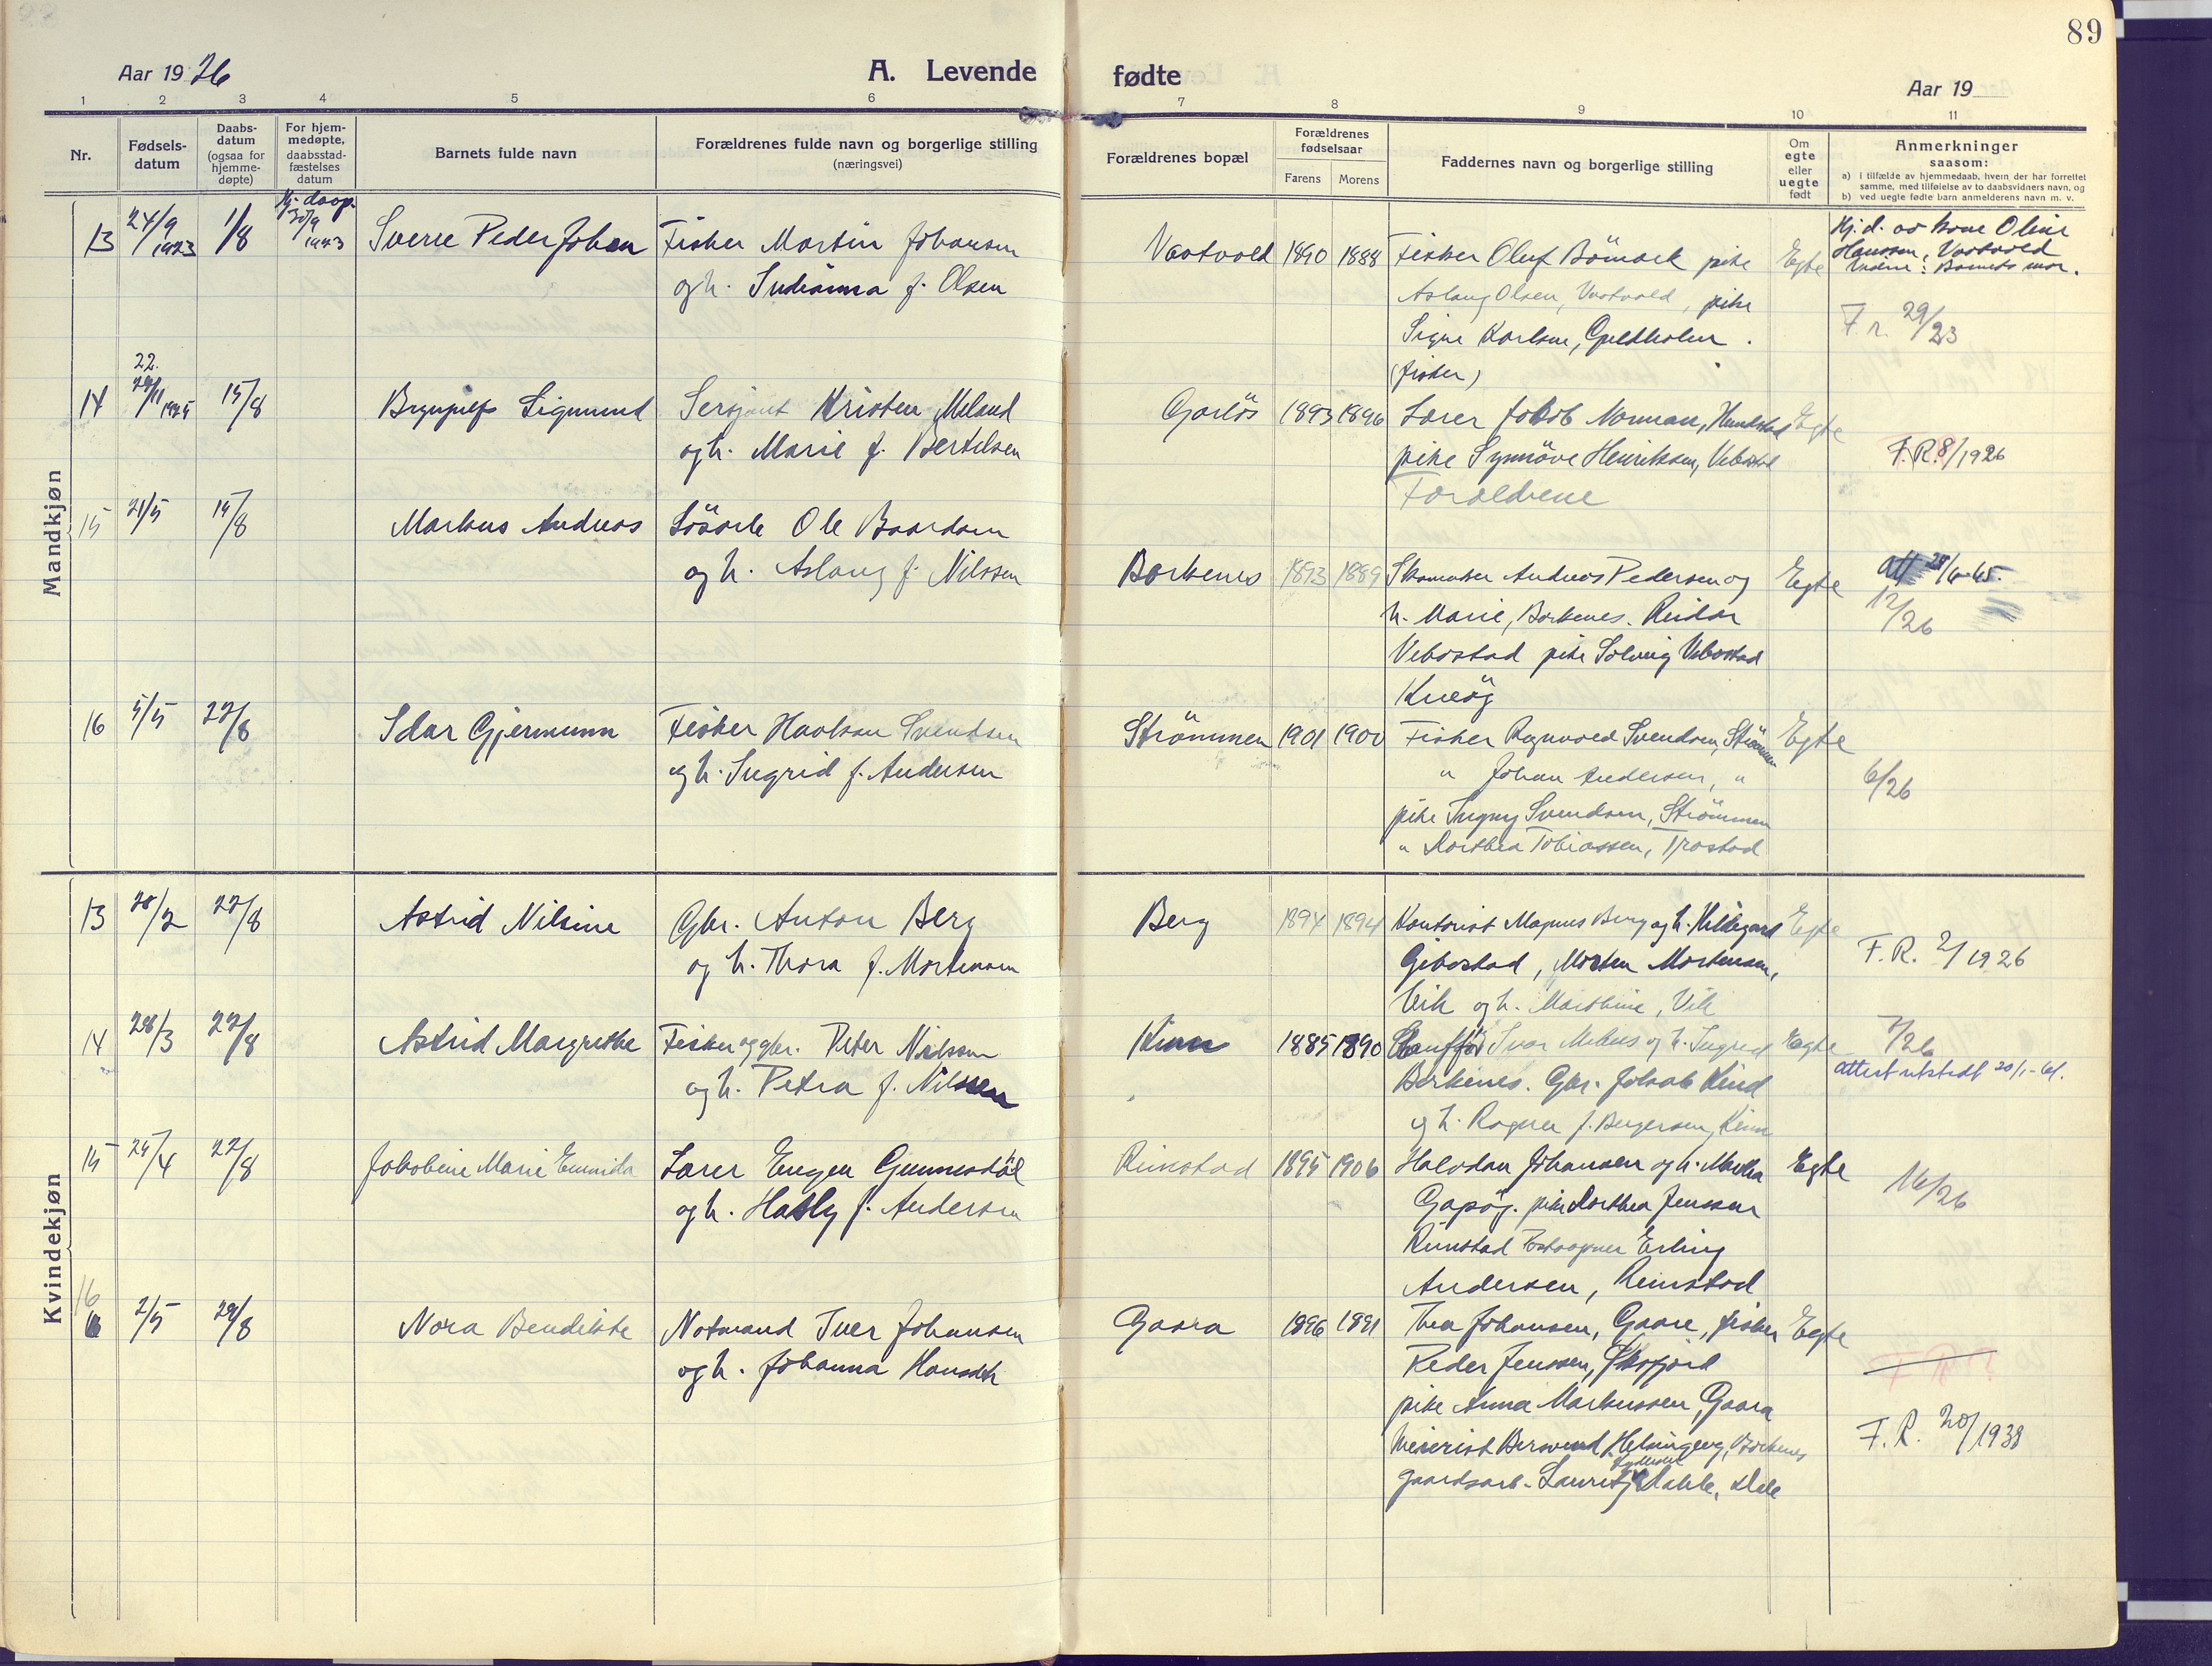 89
Aar 1926
A. Levende fødte
Aar 19
1 2 3 4 5 6 7 8 9 10 11
Nr.
Fødsels-
datum
Daabs-
datum
(ogsaa for
hjemme-
døpte)
For hjem-
medøpte,
daabsstad-
fæstelses
datum
Barnets fulde navn
Forældrenes fulde navn og borgerlige stilling
(næringsvei)
Forældrenes bopæl
Forældrenes
fødselsaar
Farens Morens
Faddernes navn og borgerlige stilling
Om
egte
eller
uegte
født
Anmerkninger
saasom:
a) i tilfælde av hjemmedaab, hvem der har forrettet
samme, med tilføielse av to daabsvidners navn, og
b) ved uegte fødte barn anmelderens navn m. v.
Mandkjøn
13 24/9 1923 1/8 Hj. daap. 30/9 1923 Sverre Peder Johan Fisker Martin Johansen
og h. Indianna f. Olsen
Vaatvold 1890 1888 Fisker Oluf Bömark pike
Aslaug Olsen, Vaatvold, pike
Signe Karlsen, Guldholm.
(fisker)
Egte
Hj. d. av kone Oline
Hanssen, Vaatvold
Vidne: Barnets mor.
F. r. 29/23
14 22. /11 1925 15/8 Brynjulf Sigmund Sersjant Kristen Meland
og h. Marie f. Bertelsen
Garlös 1893 1896 Lærer Jakob Norman, Hundstad
pike Synnöve Henriksen, Vebostad
Forældrene
Egte
F.R. 8/1926
15 21/5 15/8 Markus Andreas Lösarb Ole Baardsen
og h. Aslaug f. Nilssen
Borkenes 1893 1889 Skomaker Andreas Pedersen og
h. Marie, Borkenes. Reidar
Vebostad pike Solveig Vebostad
Kveög
Egte
att 28/6-65.
12/26
16 5/5 22/8 Idar Gjermunn Fisker Haakon Svendsen
og h. Ingrid f. Andersen
Strömmen 1901 1900 Fisker Ragnvald Svendsen, Strömmen
" Johan Andersen, "
pike Signy Svendsen, Strömmen
" Dorthea Tobiassen, Trastad
Egte
6/26
Kvindekjøn
13 28/2 22/8 Astrid Nilsine Gbr. Anton Berg
og h. Thora f. Mortensen
Berg 1894 1894 Kontorist Magnus Berg og h. Hildegard
Gibostad, Morten Mortensen,
Vik og h. Marthine, Vik
Egte
F. R. 2/1926
14 28/3 22/8 Astrid Margrethe Fisker og gbr. Peter Nilssen
og h. Petra f. Nilssen
Kinn 1885 1890 Ivar Mehus og h. Ingrid
Borkenes. Gbr. Jakob Kind
og h. Ragna f. Bergersen, Kinn
Egte
7/26
attest utstedt 20/1-61.
15 25/4 22/8 Jakobine Marie Emmida Lærer Eugen Gunnesdal
og h. Hally f. Andersen
Rinstad 1895 1906 Halvdan Johansen og h. Martha
Gapög. pike Dorthea Jenssen
Runstad Postaapner Erling
Andersen, Reinstad
Egte
16/26
16 2/5 29/8 Nora Bendikte Notmand Iver Johansen
og h. Johanna Hansdtr
Gaara 1896 1891 Thea Johansen, Gaare, fisker
Peder Jenssen, Skogfjord
pike Anna Markussen, Gaara
Meierist Bersvend Helmingerg, Borkenes
gaardsarb. Lauritz Dahle, Dale
Egte
F. R. 20/1938